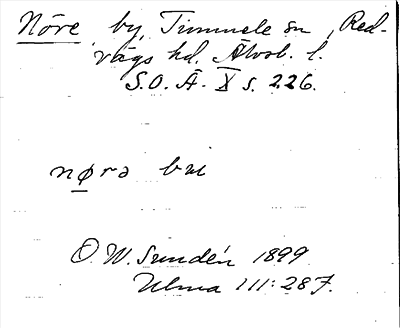 Nöre, by, Timmele sn, Red-
vägs hd. Älvsb. l.
S.O.Ä. X s. 226.
nørə
O.W. Sundén 1899
Ulma 111:287.